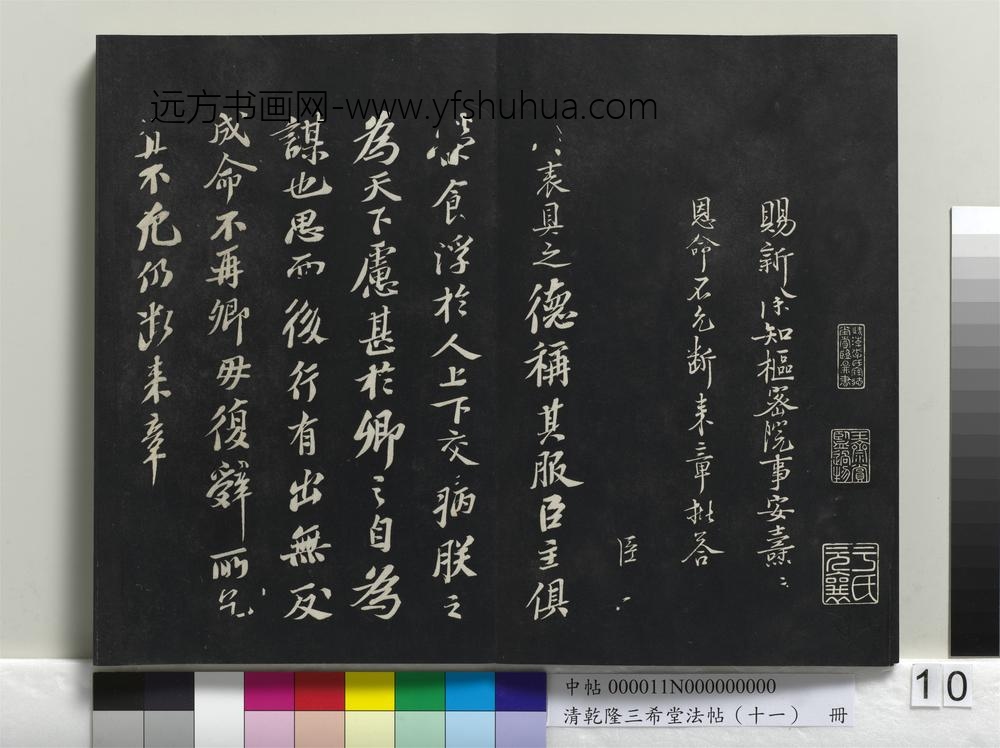 远方书画网-www.yfshuhua.com
賜新除知樞密院事安燾
恩命不允斷來章批答
臣
表具之德稱其服臣主俱
榮食浮於人上下交病朕之
為天下慮甚於卿之自為
謀也思而後行有出無反
成命不再卿毋復辭所
宜不允仍斷來章
于氏
元襄
中帖 000011N000000000
清乾隆三希堂法帖（十一） 冊
10